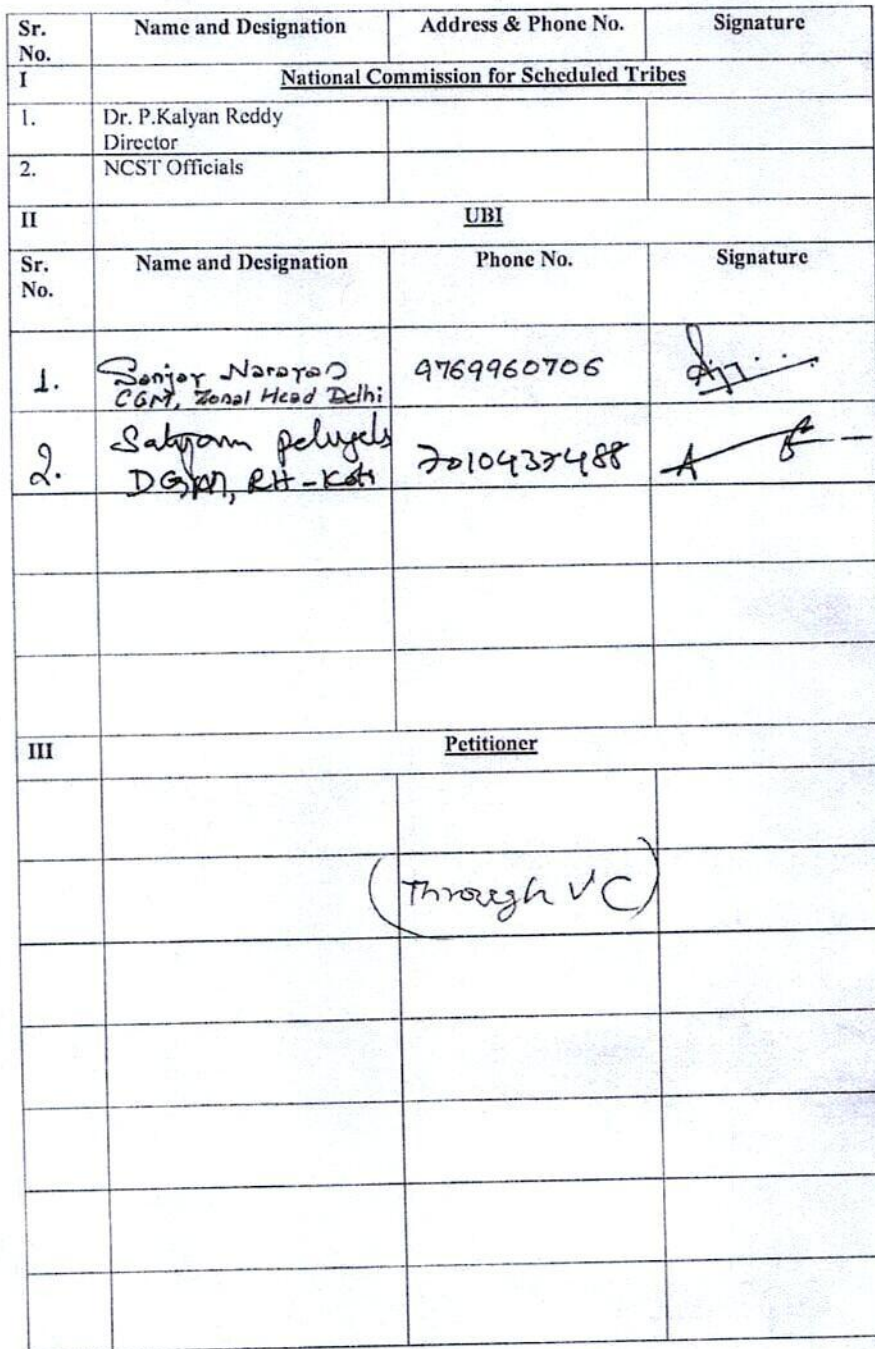 Sr. No. Name and Designation Address & Phone No. Signature
I National Commission for Scheduled Tribes
1. Dr. P.Kalyan Reddy
Director
2. NCST Officials
II UBI
Sr. No. Name and Designation Phone No. Signature
1. Sanjay Narayan 9769960706
CGM, Zonal Head Delhi
2. Satyam
DGM, RH-
III Petitioner
(Through VC)